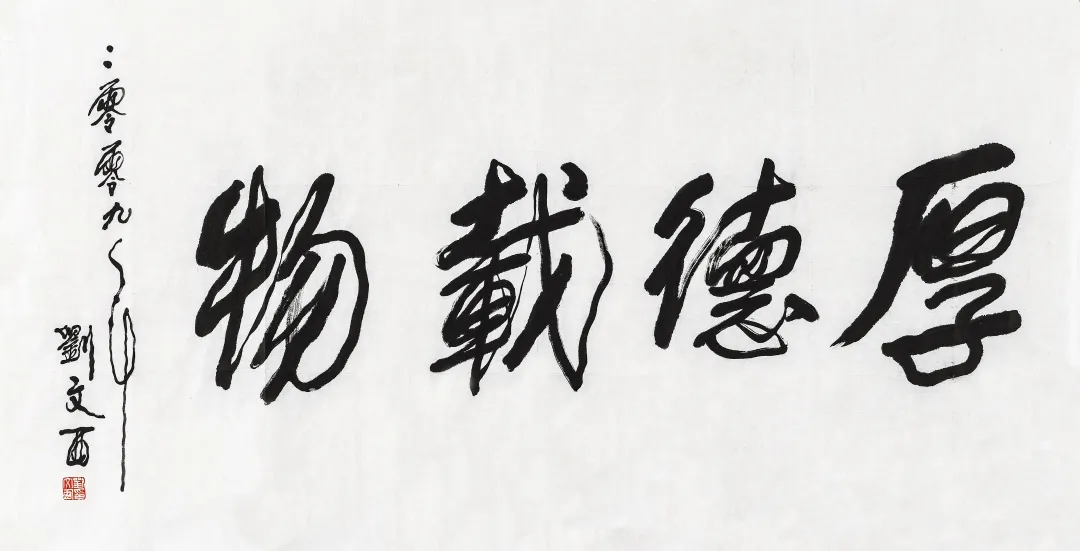 厚德載物
二零零九年
劉文西